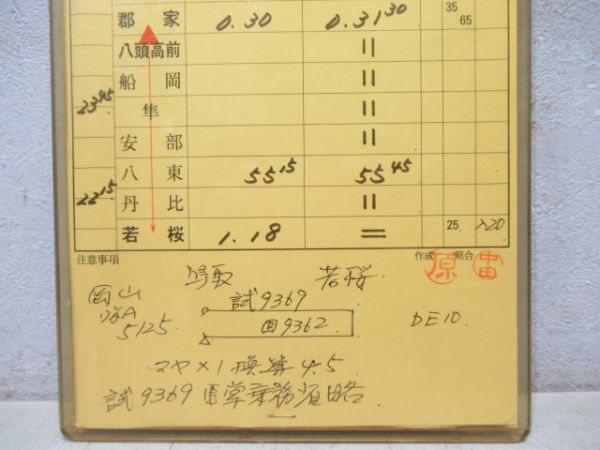 郡家 0.30 0.31 30 35 65
八頭高前 〃
船岡 〃
23 45
隼 〃
安部 〃
八東 55 15 55 45
22 15
丹比 〃
若桜 1.18 = 25 20
注意事項 作成 照合
鳥取 若桜 原
岡山 試9369
5125 回9362 DE10
マヤ×1 換算 4.5
試9369 車掌乗務省略